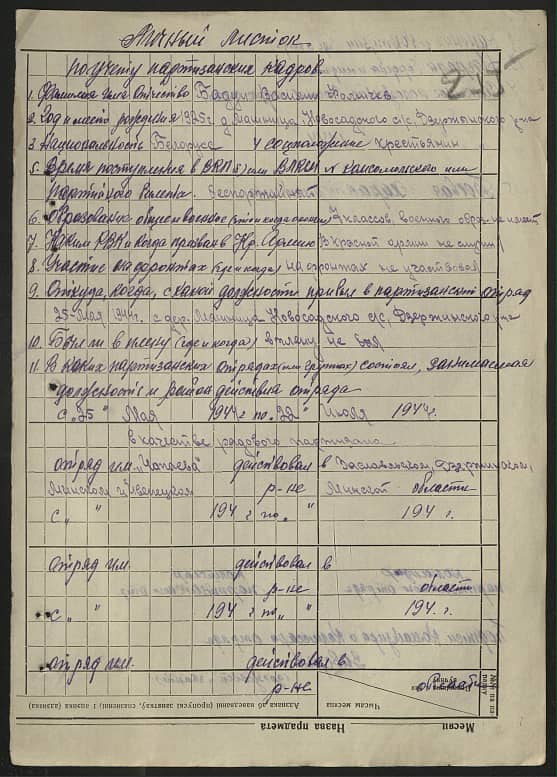 Личный листок
по учету партизанских кадров.
1. Фамилия имя Отчество Василий
2. Год и место рождения 1925 г. д. Машница, Новосадского с/с, Дзержинского р-на
3. Национальность Белорус 4 социальное Крестьянин
5. Время поступления в ВКП(б) или ВЛКСМ и комсомольского или
партийного билета. беспартийный
6. Образование общее и военное (эти и когда окончил) 7 классов, военного образ. не имеет
7. Каким РВК и когда призван в Кр. Армию В Красной армии не служил
8. Участие на фронтах (где и когда) на фронтах не участвовал
9. Откуда, когда, с какой должности прибыл в партизанский отряд
25 Мая 1944 г. с дер. Машница Новосадского с/с, Дзержинского р-на
10. Был ли в плену (где и когда) в плену не был
11. В каких партизанских отрядах (или группах) состоял, занимаемая
должность и район действия отряда
с „25" Мая 1944 г. по „22" Июля 1944 г.
в качестве рядового партизана
отряд им. "Чапаева" действовал в Заславльском, Дзержинском,
Минском и Ивенецком р-не Минской области
с „ " 194 г. по „ " 194 г.
отряд им. действовал в
р-не области
с „ " 194 г. по „ " 194 г.
отряд им. действовал в
р-не области
Адзнака да выселкі (пропускі занятку, спазненні, і адзнака дазнака)
Чысты месяца
№№ па па-
Назва прадмета
Месяц